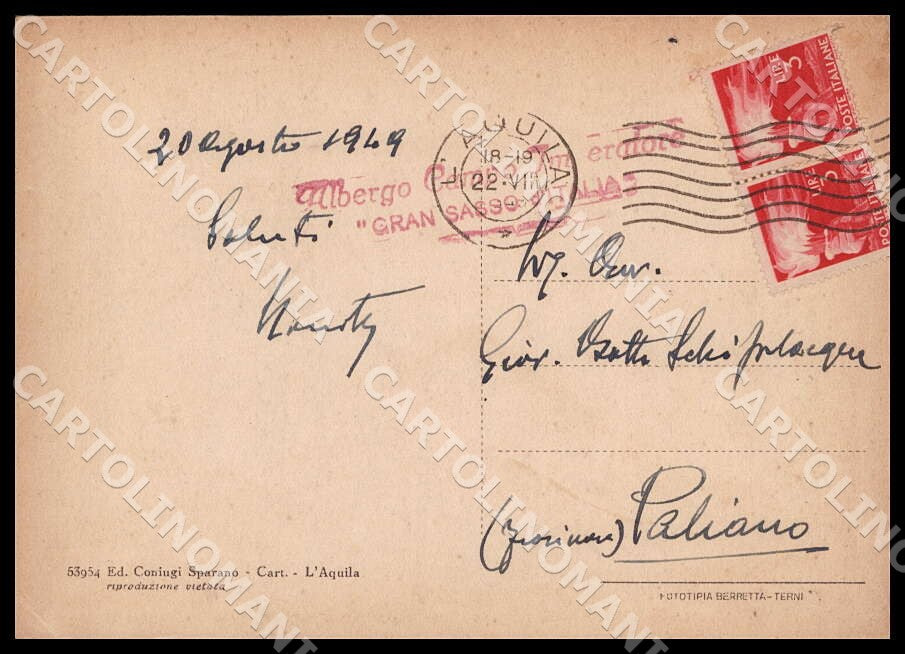 20 Agosto 1949
Saluti
Albergo Campo Imperatore
"GRAN SASSO D'ITALIA"
L'AQUILA
18-19
22·VIII
LIRE 3
POSTE ITALIANE
LIRE 3
POSTE ITALIANE
Giov.
(Frosinone) Paliano
53954 Ed. Coniugi Sparano - Cart. - L'Aquila
riproduzione vietata
FOTOTIPIA BERRETTA-TERNI
CARTOLINOMANIA
CARTOLINOMANIA
CARTOLINOMANIA
CARTOLINOMANIA
CARTOLINOMANIA
CARTOLINOMANIA